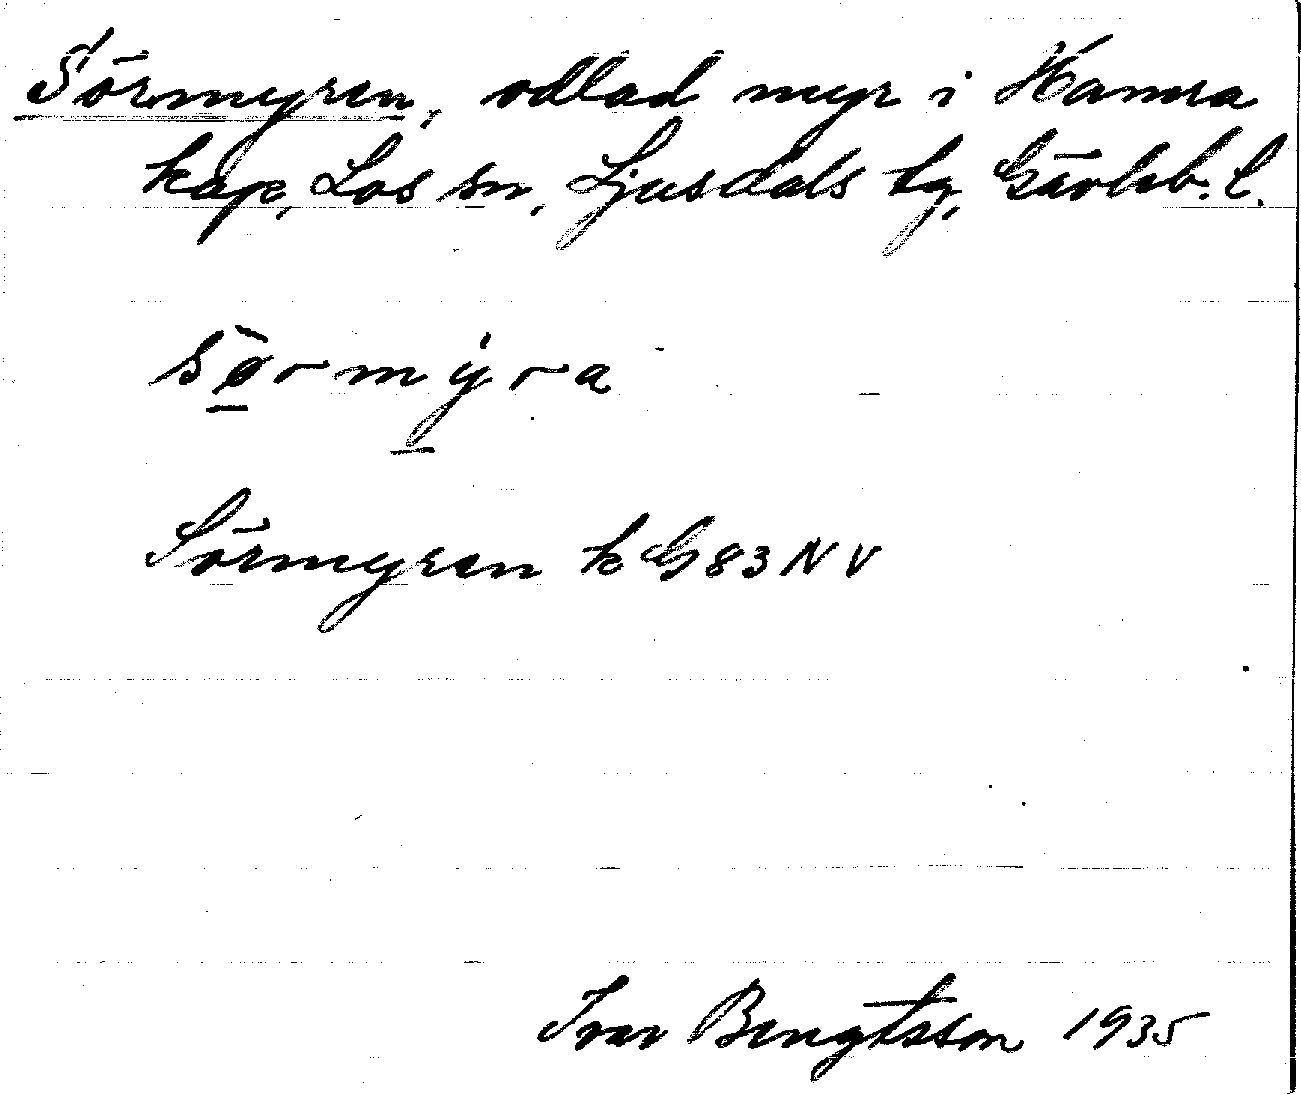 Sörmyren, odlad myr i Hamra
kap, Los sn, Ljusdals tg, Gävleb. l.
sø̀rmýra
Sörmyren k G83NV
Ivar Bengtsson 1935